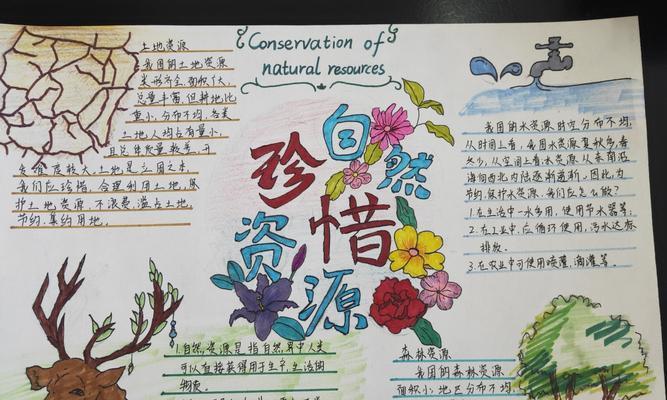 Conservation of
natural resources
珍惜
自然
资源
土地资源
我国的土地资源
类形齐全,面积广大
总量丰富,但耕地比
重小,分布不均,各类
土地人均占有量小,
且总体质量较差,开
发难度较大,土地是立国之本,
我们应珍惜、合理利用土地,保
护土地资源,不浪费、滥占土地,
节约、集约用地。
我国的水资源时空分布不均,
从时间上看,我国水资源夏秋多,春
冬少,从空间上看水资源从东南沿
海向西北内陆逐渐递渐,因此,为
节约、保护水资源,我们应怎么做?
1.在生活中一水多用,使用节水器等。
2.在工业中,应循环使用,污水达标
排放。
3.在农业中可使用喷灌,滴灌等。
1.自然资源是指自然界中人类
可以直接获得用于生产、生活的
物质
森林资源
我国的森林资源
面积小,地区分布不均,